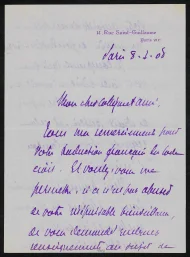 Paris 8.1.08
Mon cher collègue et ami,
Tous mes remerciements pour
votre traduction française du code
civil. Et voulez-vous me
permettre, si ce n'est pas abuser
de votre inépuisable bienveillance,
de vous demander quelques
renseignements au sujet de